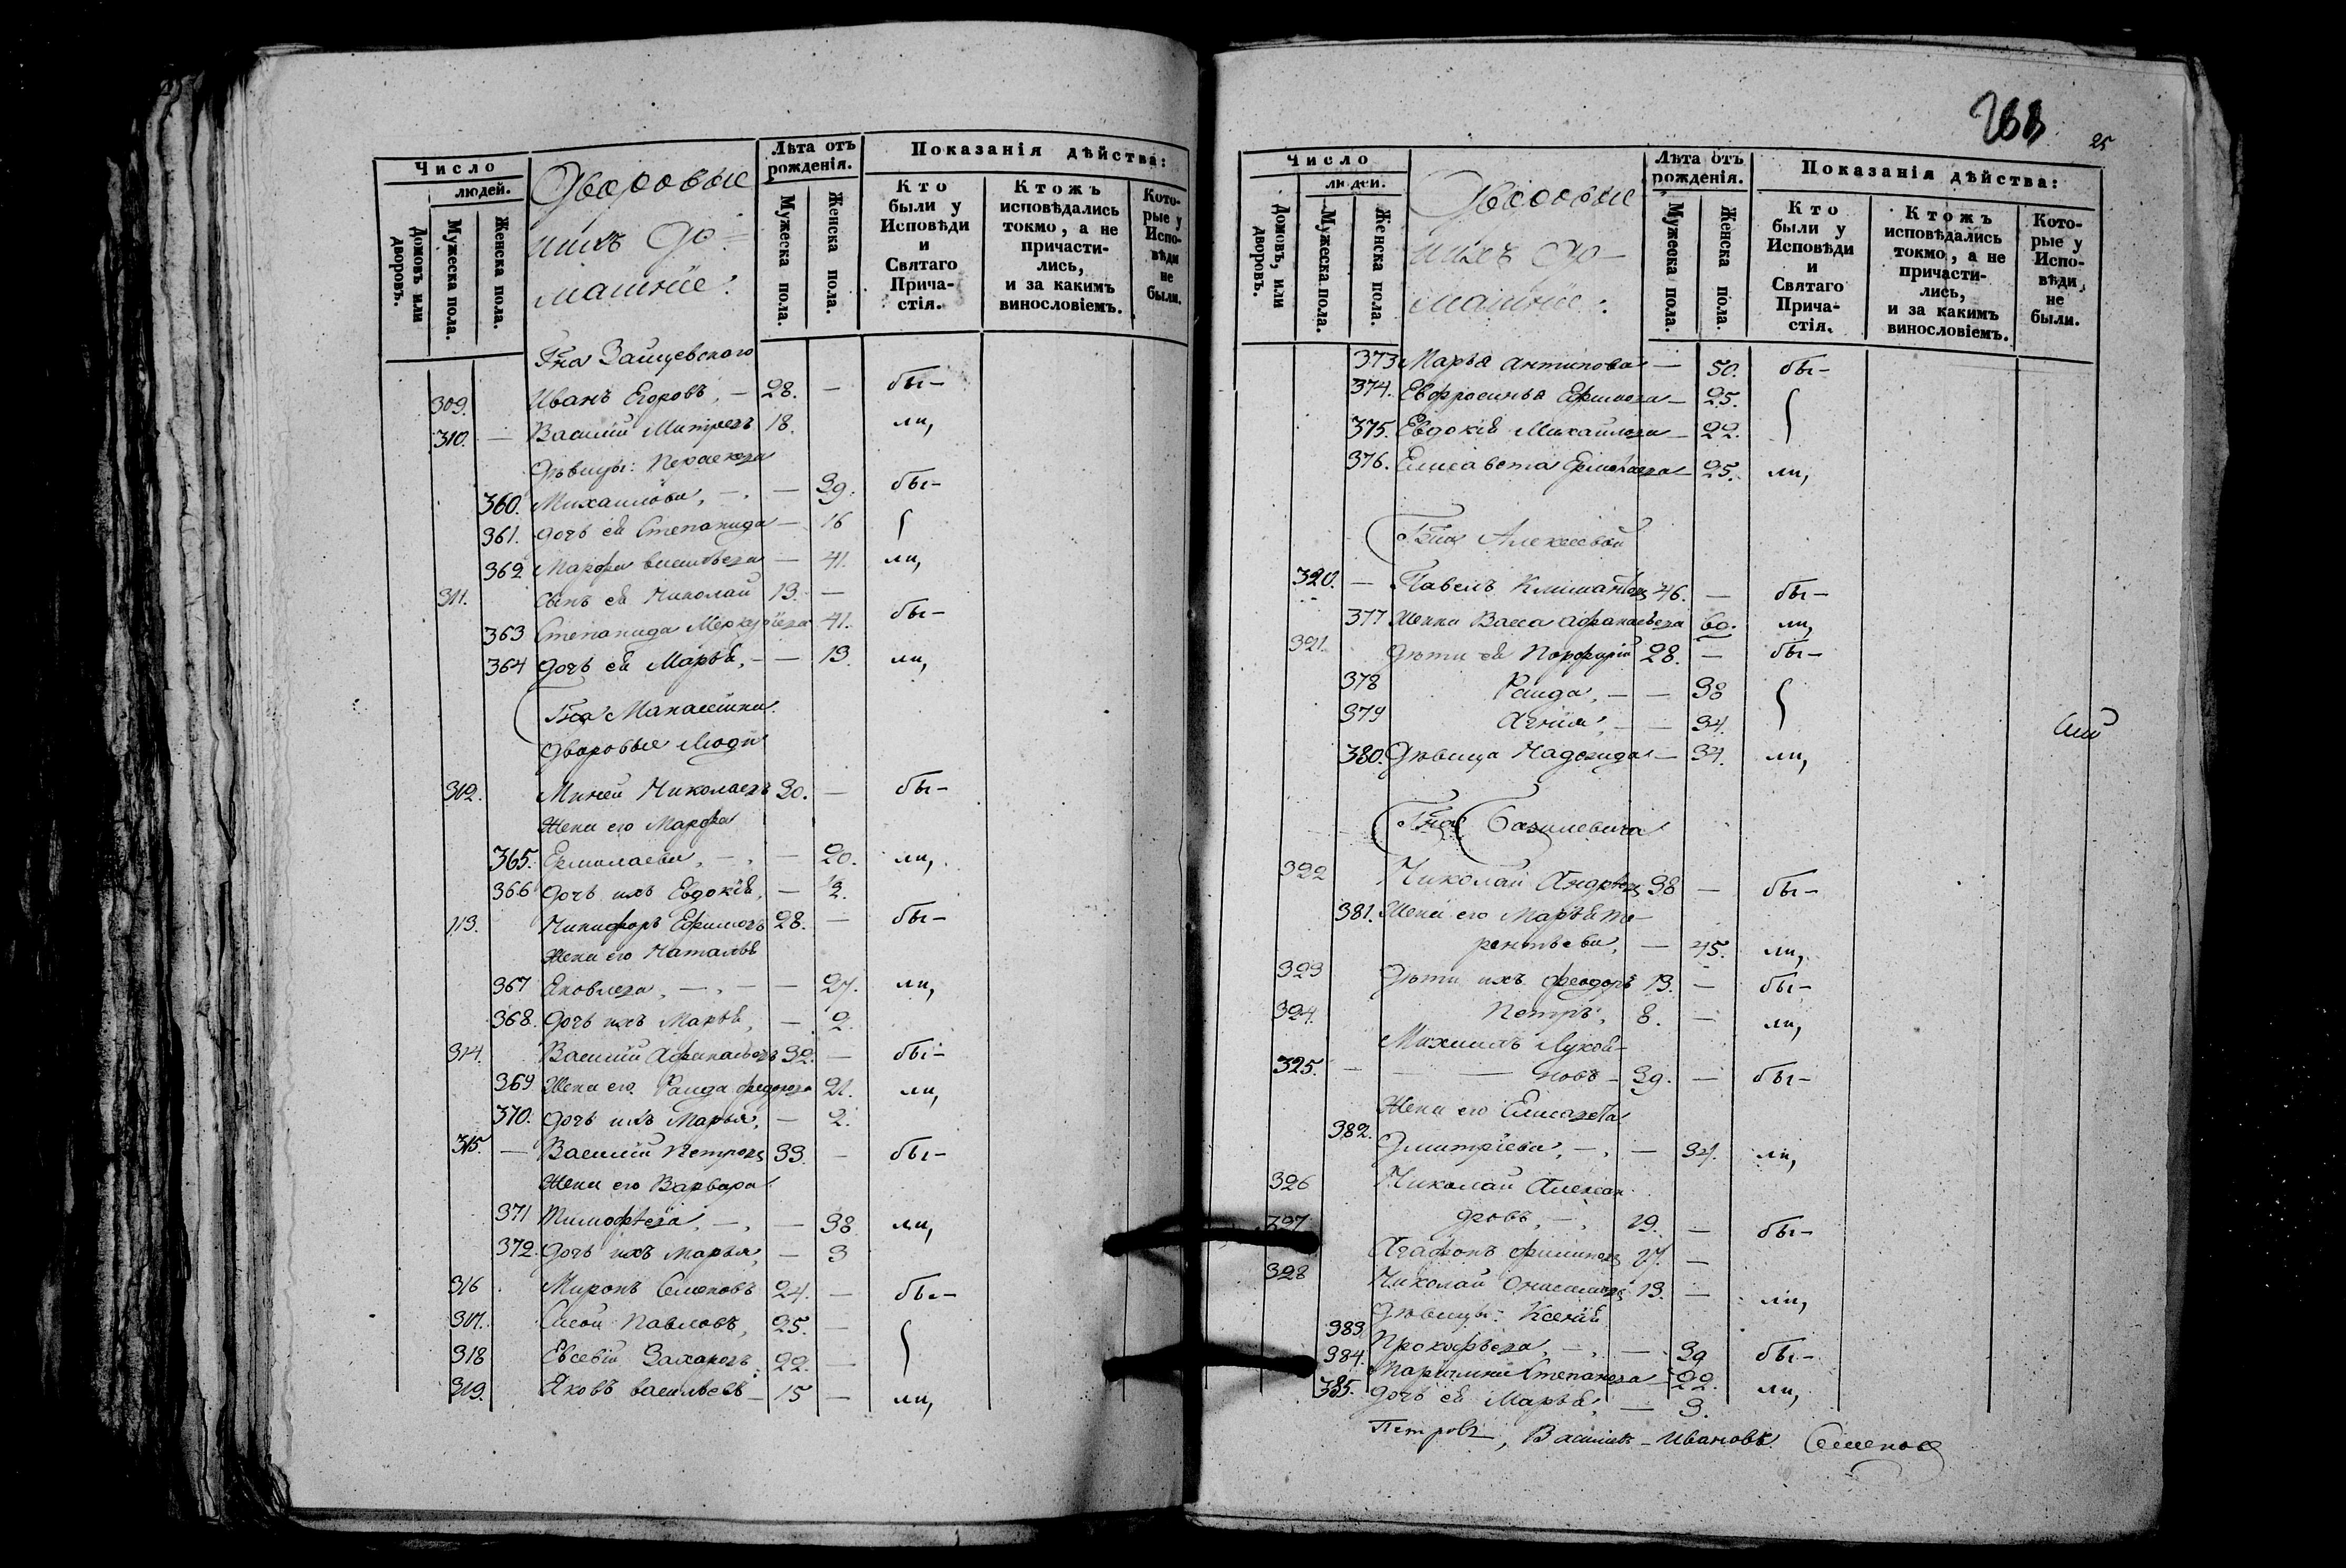 Число
людей.
Домовъ или дворовъ.
Мужеска пола.
Женска пола.
Дворовые
ихъ до=
машніе:
Лѣта отъ рожденія.
Мужеска пола.
Женска пола.
Показанія дѣйства:
Кто были у Исповѣди и Святаго Причастія.
Ктожъ исповѣдались токмо, а не причасти-лись, и за какимъ винословіемъ.
Кото-рые у Испо-вѣди не были.
Гна
309. Иванъ Егоровъ, — 28. — бы-
310. — Василій 18. ли,
Дѣвицы:
360. Михаилова, — 39. бы-
361. дочь ея Степанида — 16
362 Марфа — 41. ли,
311. Сынъ ея Николай 13. —
363 Степанида 41. бы-
364 дочь ея Марья, — — 13. ли,
Гна
дворовые люди
312. Николаевъ 30. — бы-
Жена его Марфа
365. Ермолаева, — — 20. ли,
366 дочь ихъ Евдокія, —
113. Никифоръ Ефимовъ 28. — бы-
Жена его Наталья
367 Яковлева, — — 27. ли,
368. дочь ихъ Марья, — 2.
314. Василій Афанасьевъ 32. — бы-
369 Жена его Раида Федорова 21. ли,
370. дочь ихъ Марья, — 2.
315. — Василій Петровъ 33. — бы-
Жена его Варвара
371 Тимофѣева, — — 38. ли,
372. дочь ихъ Марья, — 3
316 Миронъ Семеновъ 24. — бы-
317. Сысой Павловъ, 25. —
318 Евсевій Захаровъ 22. —
319. Яковъ Васильевъ — 15 — ли,
25
Число
людей.
Домовъ, или дворовъ.
Мужеска пола.
Женска пола.
Дворовые
ихъ до-
машніе:
Лѣта отъ рожденія.
Мужеска пола.
Женска пола.
Показанія дѣйства:
Кто были у Исповѣди и Святаго Причастія.
Ктожъ исповѣдались токмо, а не причасти-лись, и за какимъ винословіемъ.
Кото-рые у Испо-вѣди, не были.
373 Марья Антипова — 50. бы-
374. Евфросинья Ефимова — 25.
375. Евдокія Михаилова — 22.
376. Елисавета Ермолаева — 25. ли,
Алексеевой
320. — Павелъ 46. — бы-
377 Жена Васса Афанасьева 60. ли,
321. Дѣти ея Порфирій 28. — бы-
378 Раида, — — 38
379 Агнія, — — 34.
380. Дѣвица Надежда — 34. ли,
Гна Базилевича
322 Николай Андрѣевъ 38 — бы-
381. Жена его Марья Те-
рентьева, — 45. ли,
323 Дѣти ихъ Феодоръ 13. — бы-
324. Петръ, 8. — ли,
Михаилъ Лукой-
325. — новъ — 39. — бы-
Жена его Елисавета
382. Дмитріева, — — 34. ли,
326 Николай Алексан-
дровъ, — 19. — бы-
327 Агафонъ Филиповъ 17. —
328 Николай 13. — ли,
Дѣвицы: Ксенія
383. Прокофьева, — — 39 бы-
384. Степанова — 22. ли,
385. дочь ея Марья, — 3.
Петровъ, Василій Ивановъ Семенов